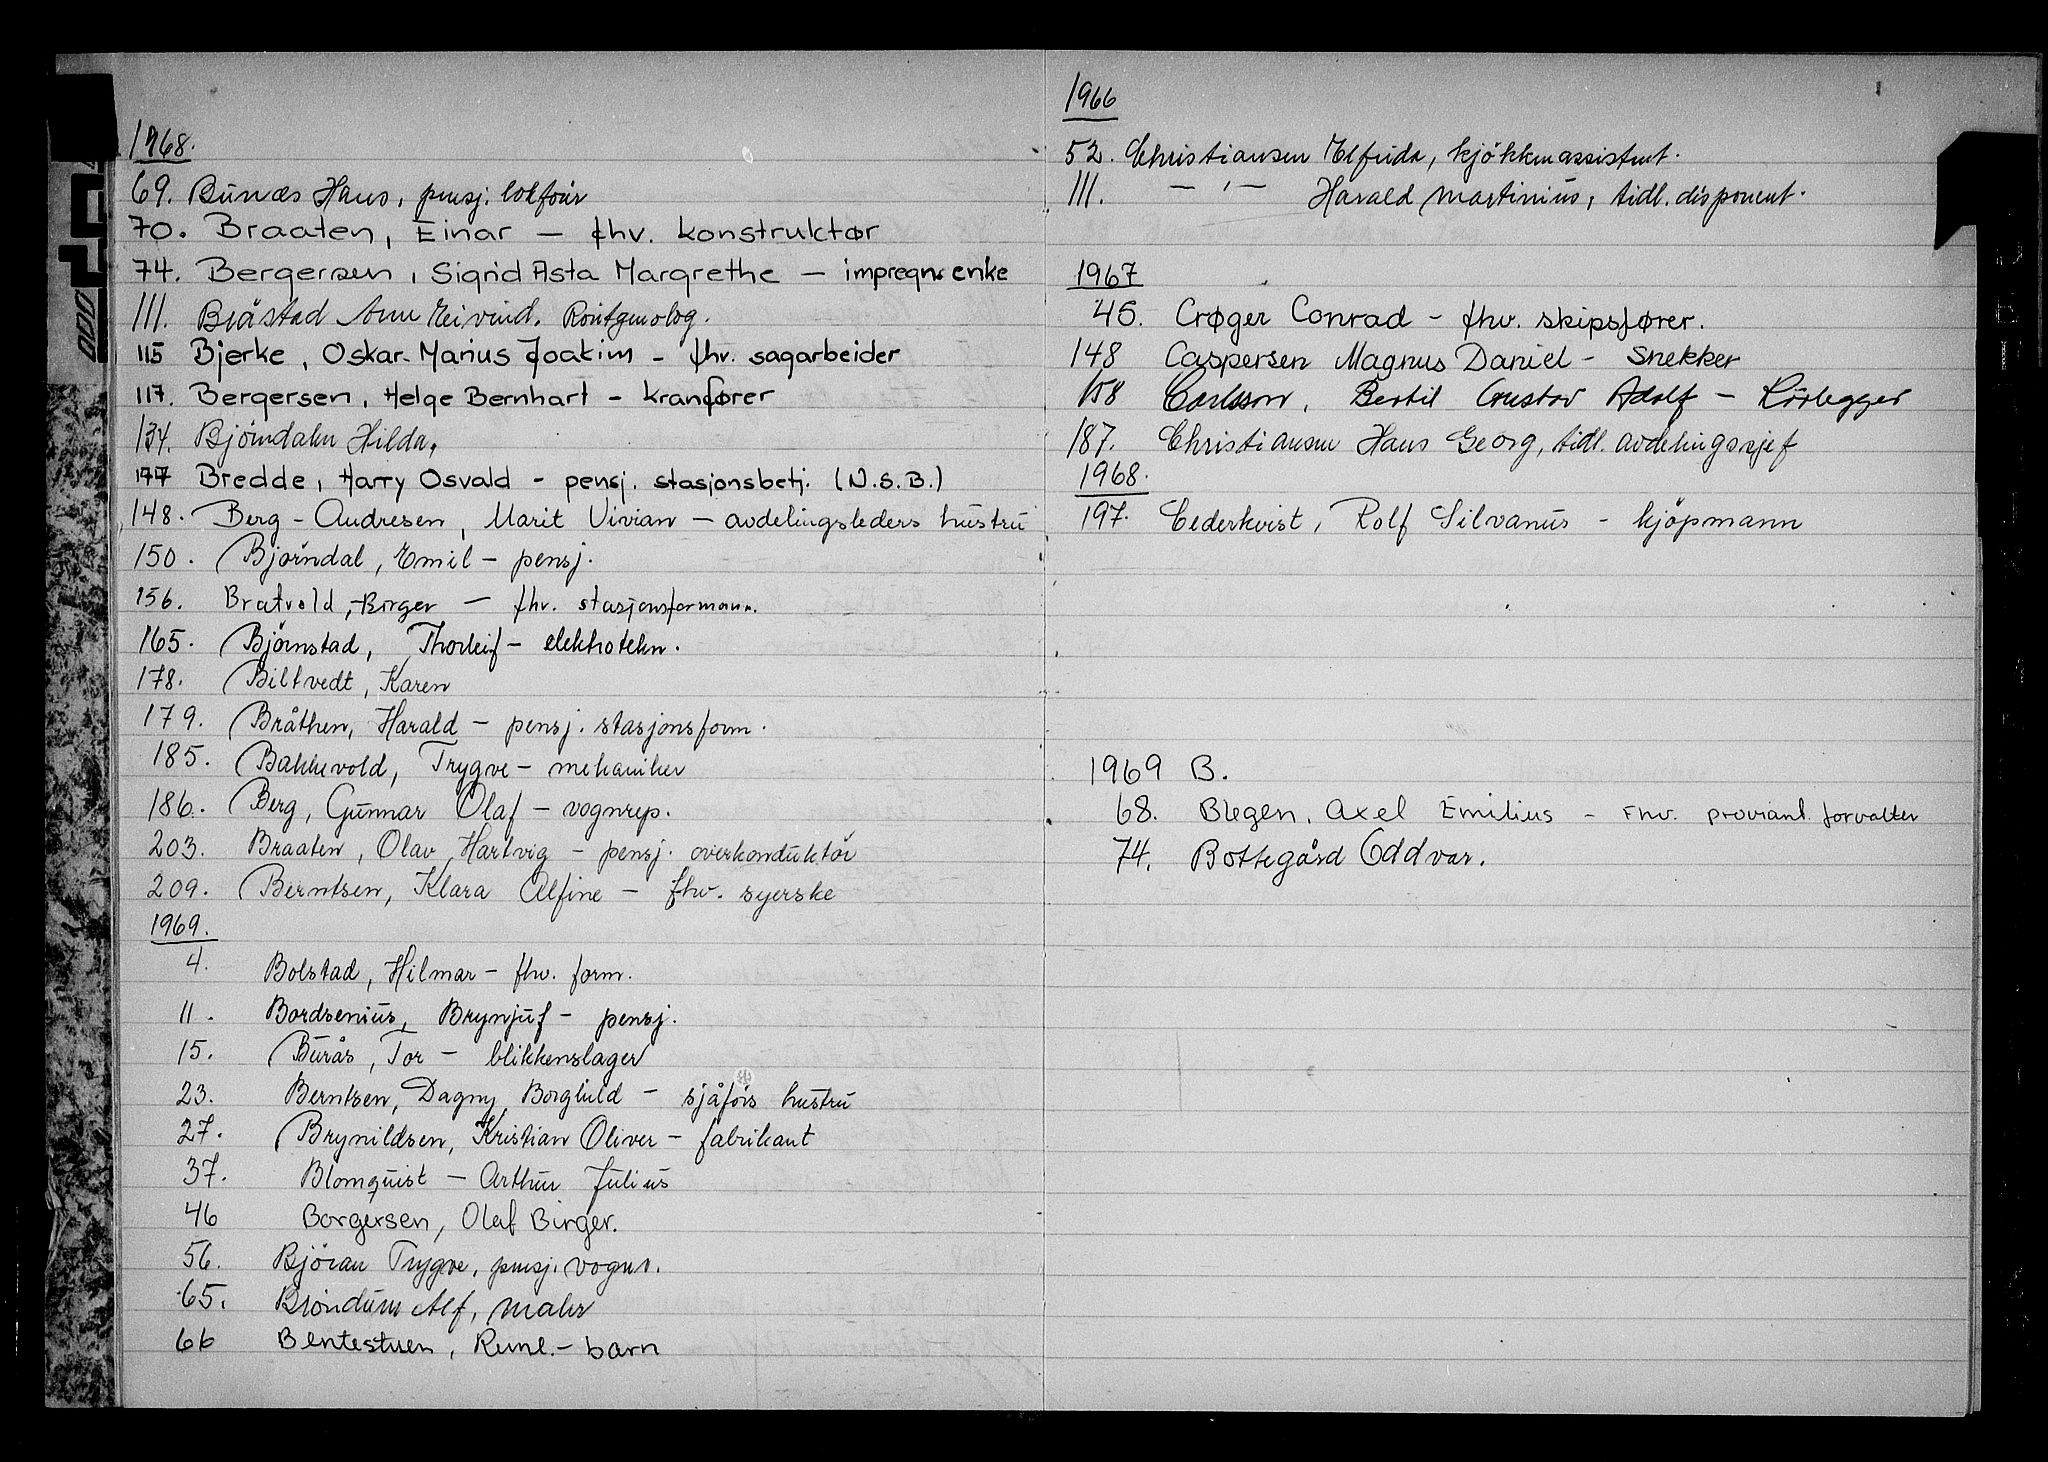 1968.
69. Bunæs Hans, pensj. lokför
70. Braaten, Einar — fhv. konstruktør
74. Bergersen, Sigrid Asta Margrethe — impregn. enke
111. Bråstad Arne Eivind. Röntgenolog.
115 Bjerke, Oskar Marius Joakim - fhv. sagarbeider
117. Bergersen, Helge Bernhart - kranfører
134. Björndalen Hilda.
147 Bredde, Harry Osvald - pensj. stasjonsbetj. (N.S.B.)
148. Berg-Andresen, Marit Vivian — avdelingsleders hustru
150. Björndal, Emil — pensj.
156. Bratvold, Birger — fhv. stasjonsformann.
165. Björnstad, Thorleif — elektrotekn.
178. Biltvedt, Karen
179. Bråthen, Harald — pensj. stasjonsform.
185. Bakkevold, Trygve — mekaniker
186. Berg, Gunnar Olaf — vognrep.
203. Braaten, Olav Hartvig — pensj. overkonduktör
209. Berntsen, Klara Alfine — fhv. syerske
1969.
4. Bolstad, Hilmar — fhv. form.
11. Bordsenius, Brynjulf — pensj.
15. Burås, Tor — blikkenslager
23. Berntsen, Dagny Borghild — sjåførs hustru
27. Brynildsen, Kristian Oliver — fabrikant
37. Blomquist — Arthur Julius
46 Borgersen, Olaf Birger.
56. Björan Trygve, pensj. vognv.
65. Bröndum Alf, maler
66 Bentestuen, Rune. — barn
1966
52. Christiansen Elfrida, kjökkenassistent.
111. — " — Harald Martinius, tidl. disponent.
1967
45. Crøger Conrad - fhv. skipsfører.
148 Caspersen Magnus Daniel - Snekker
158 Carlsson, Bertil Gustav Adolf — Rörlegger
187. Christiansen Hans Georg, tidl. avdelingssjef
1968.
197. Cederkvist, Rolf Silvanus - kjöpmann
1969 B.
68. Blegen, Axel Emilius — Fhv. proviant forvalter
74. Bottegård Oddvar.